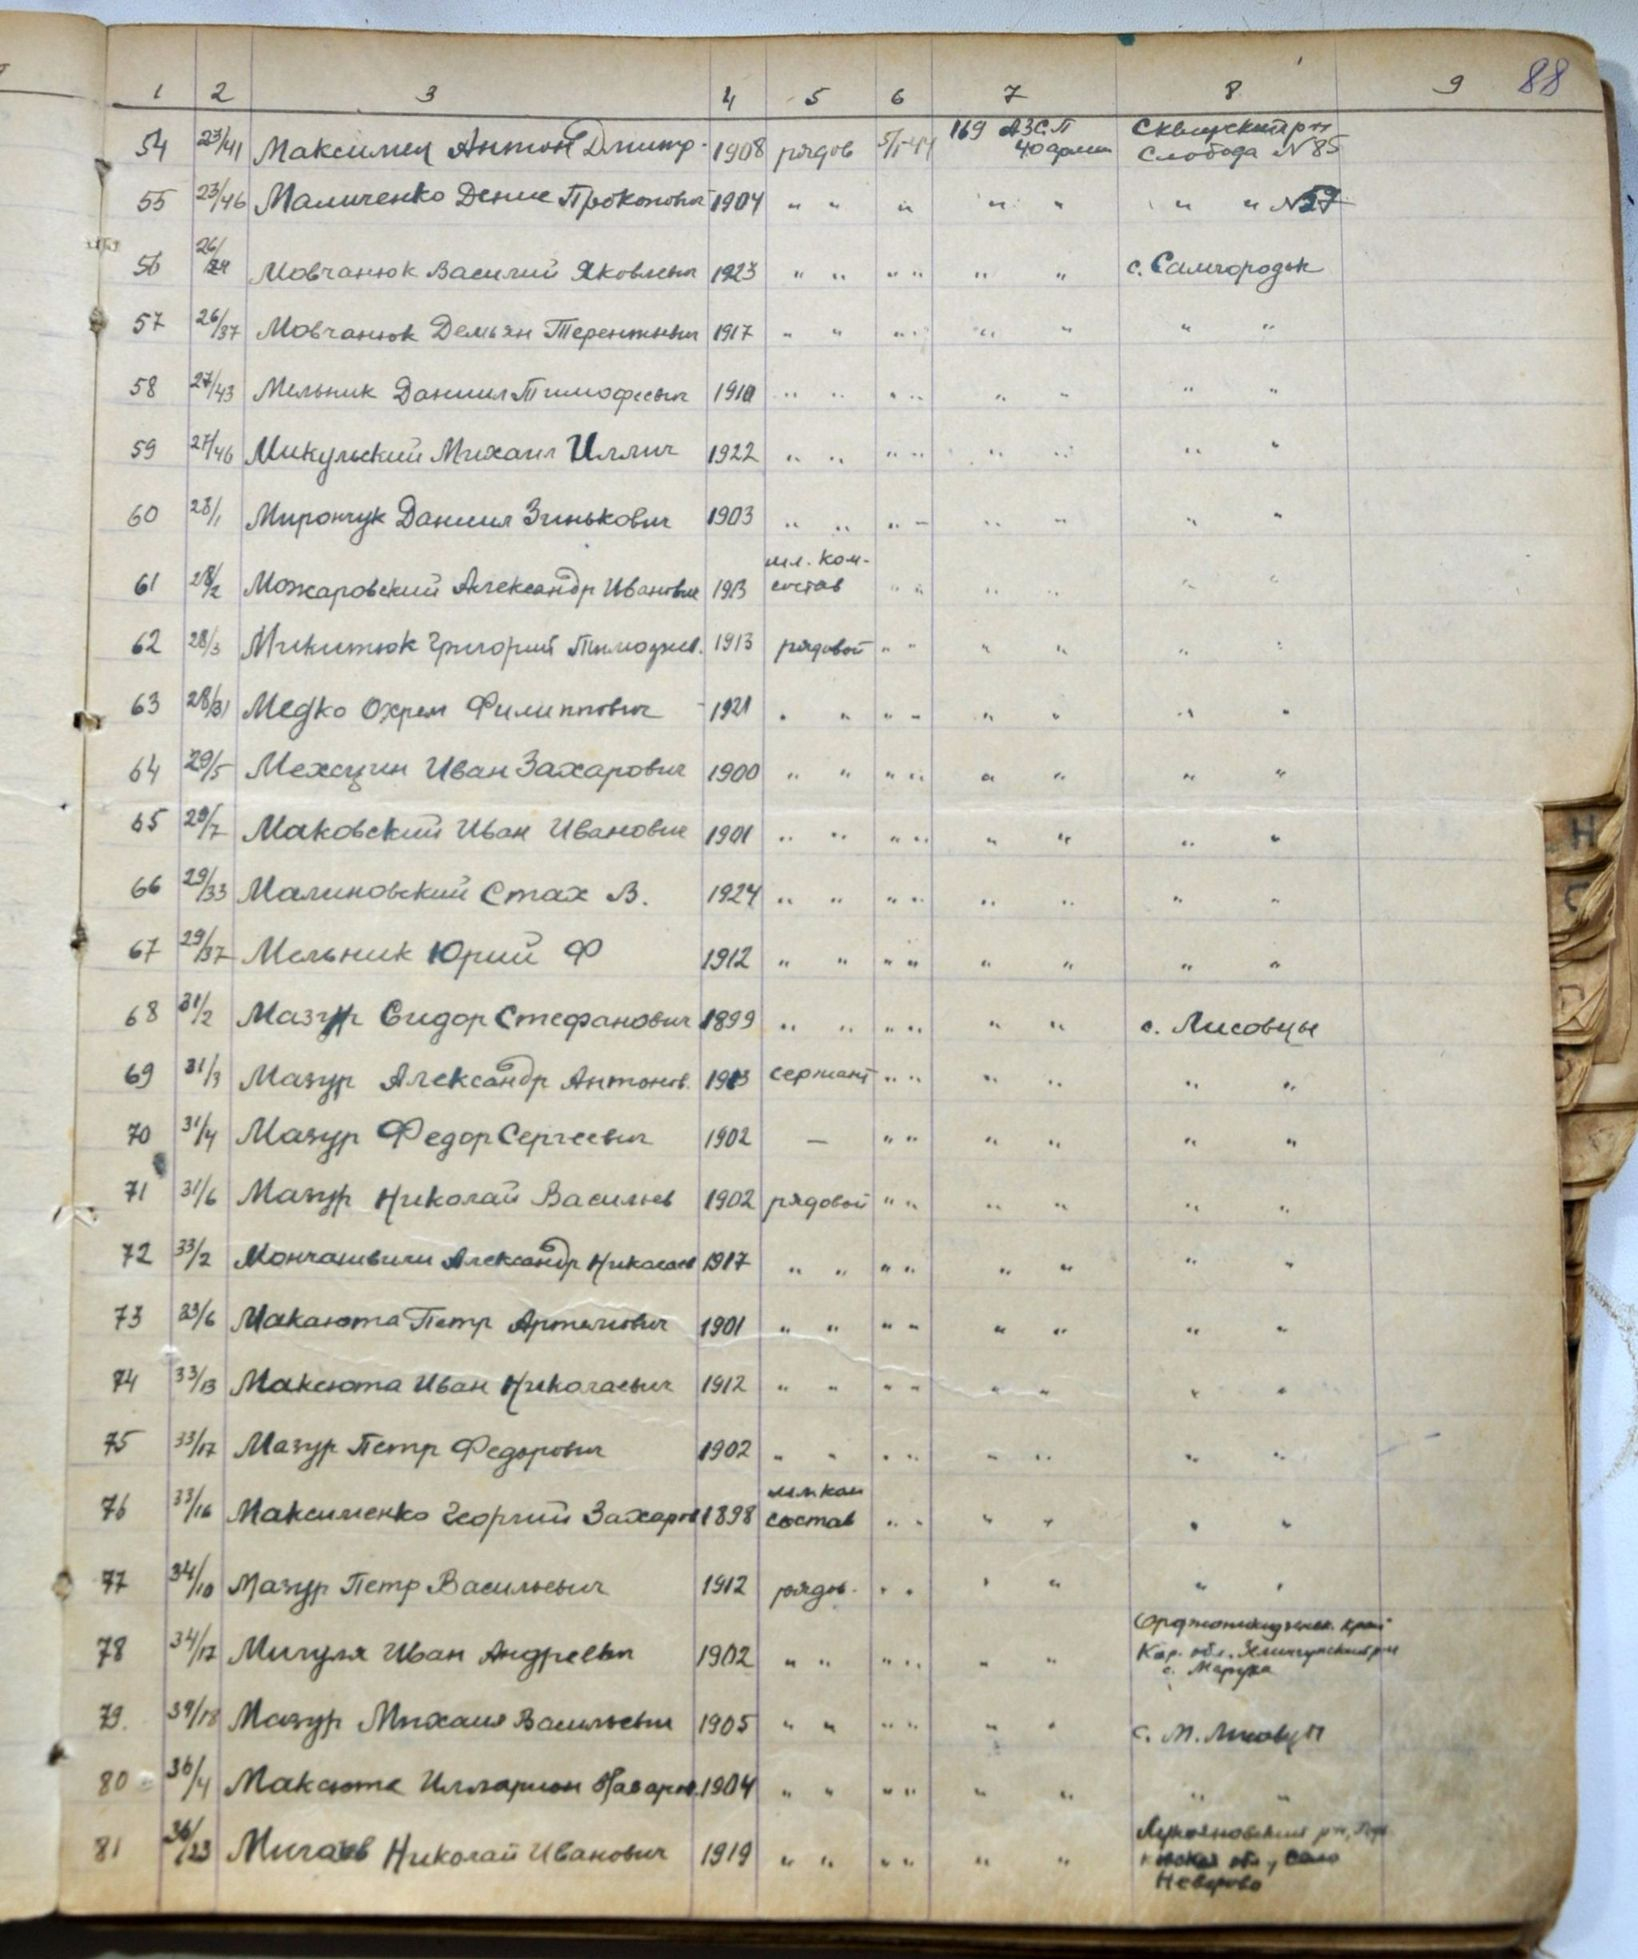 88
1 2 3 4 5 6 7 8 9
54 23/41 Максимец Антон Дмитр. 1908 рядов 5/I-44 169 АЗСП 40 армии Сквирский р-н Слобода №85
55 23/46 Маличенко Денис Прокопович 1904 " " " " " " " №57
56 26/24 Мовчанюк Василий Яковлевич 1923 " " " " " " с. Самгородок
57 26/37 Мовчанюк Демьян Терентьевич 1917 " " " " " " " "
58 27/43 Мельник Даниил Тимофеевич 1910 " " " " " " " "
59 27/46 Микульский Михаил Иллич 1922 " " " " " " " "
60 28/1 Мирончук Даниил Зинькович 1903 " " " " " " " "
61 28/2 Можаровский Александр Иванович 1913 мл. ком-состав " " " " " "
62 28/3 Микитюк Григорий 1913 рядовой " " " " " "
63 28/31 Медко Охрем Филиппович 1921 " " " " " " " "
64 29/5 Иван Захарович 1900 " " " " " " " "
65 29/7 Маковский Иван Иванович 1901 " " " " " " " "
66 29/33 Малиновский Стах В. 1924 " " " " " " " "
67 29/37 Мельник Юрий Ф 1912 " " " " " " " "
68 31/2 Мазур Сидор Стефанович 1899 " " " " " " с. Лисовцы
69 31/3 Мазур Александр Антонов. 1913 сержант " " " " " "
70 31/4 Мазур Федор Сергеевич 1902 — " " " " " "
71 31/6 Мазур Николай Васильев 1902 рядовой " " " " " "
72 33/2 Александр Николаев 1917 " " " " " " " "
73 33/6 Макаюта Петр Артемович 1901 " " " " " " " "
74 33/13 Максюта Иван Николаевич 1912 " " " " " " " "
75 33/17 Мазур Петр Федорович 1902 " " " " " " " "
76 33/16 Максименко Георгий Захаров 1898 мл. ком состав " " " " " "
77 34/10 Мазур Петр Васильевич 1912 рядов. " " " " " "
78 34/17 Мигуля Иван Андреевич 1902 " " " " " " Орджоникидзевск. край
Кар. обл. р-н
с. Маруха
79. 34/18 Мазур Михаил Васильевич 1905 " " " " " " с. М. Лисовцы
80 36/4 Максюта Илларион Назаров. 1904 " " " " " " " "
81 36/23 Николай Иванович 1919 " " " " " " Лукояновский р-н,
обл, село
Неверово
Н
С